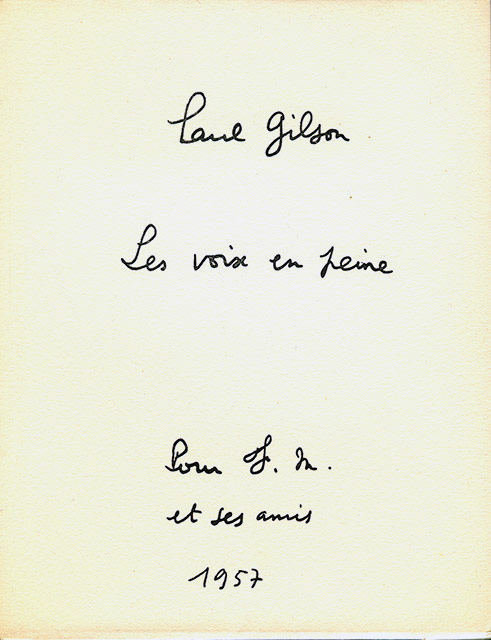 Paul Gilson
Les voix en peine
Pour F. M.
et ses amis
1957